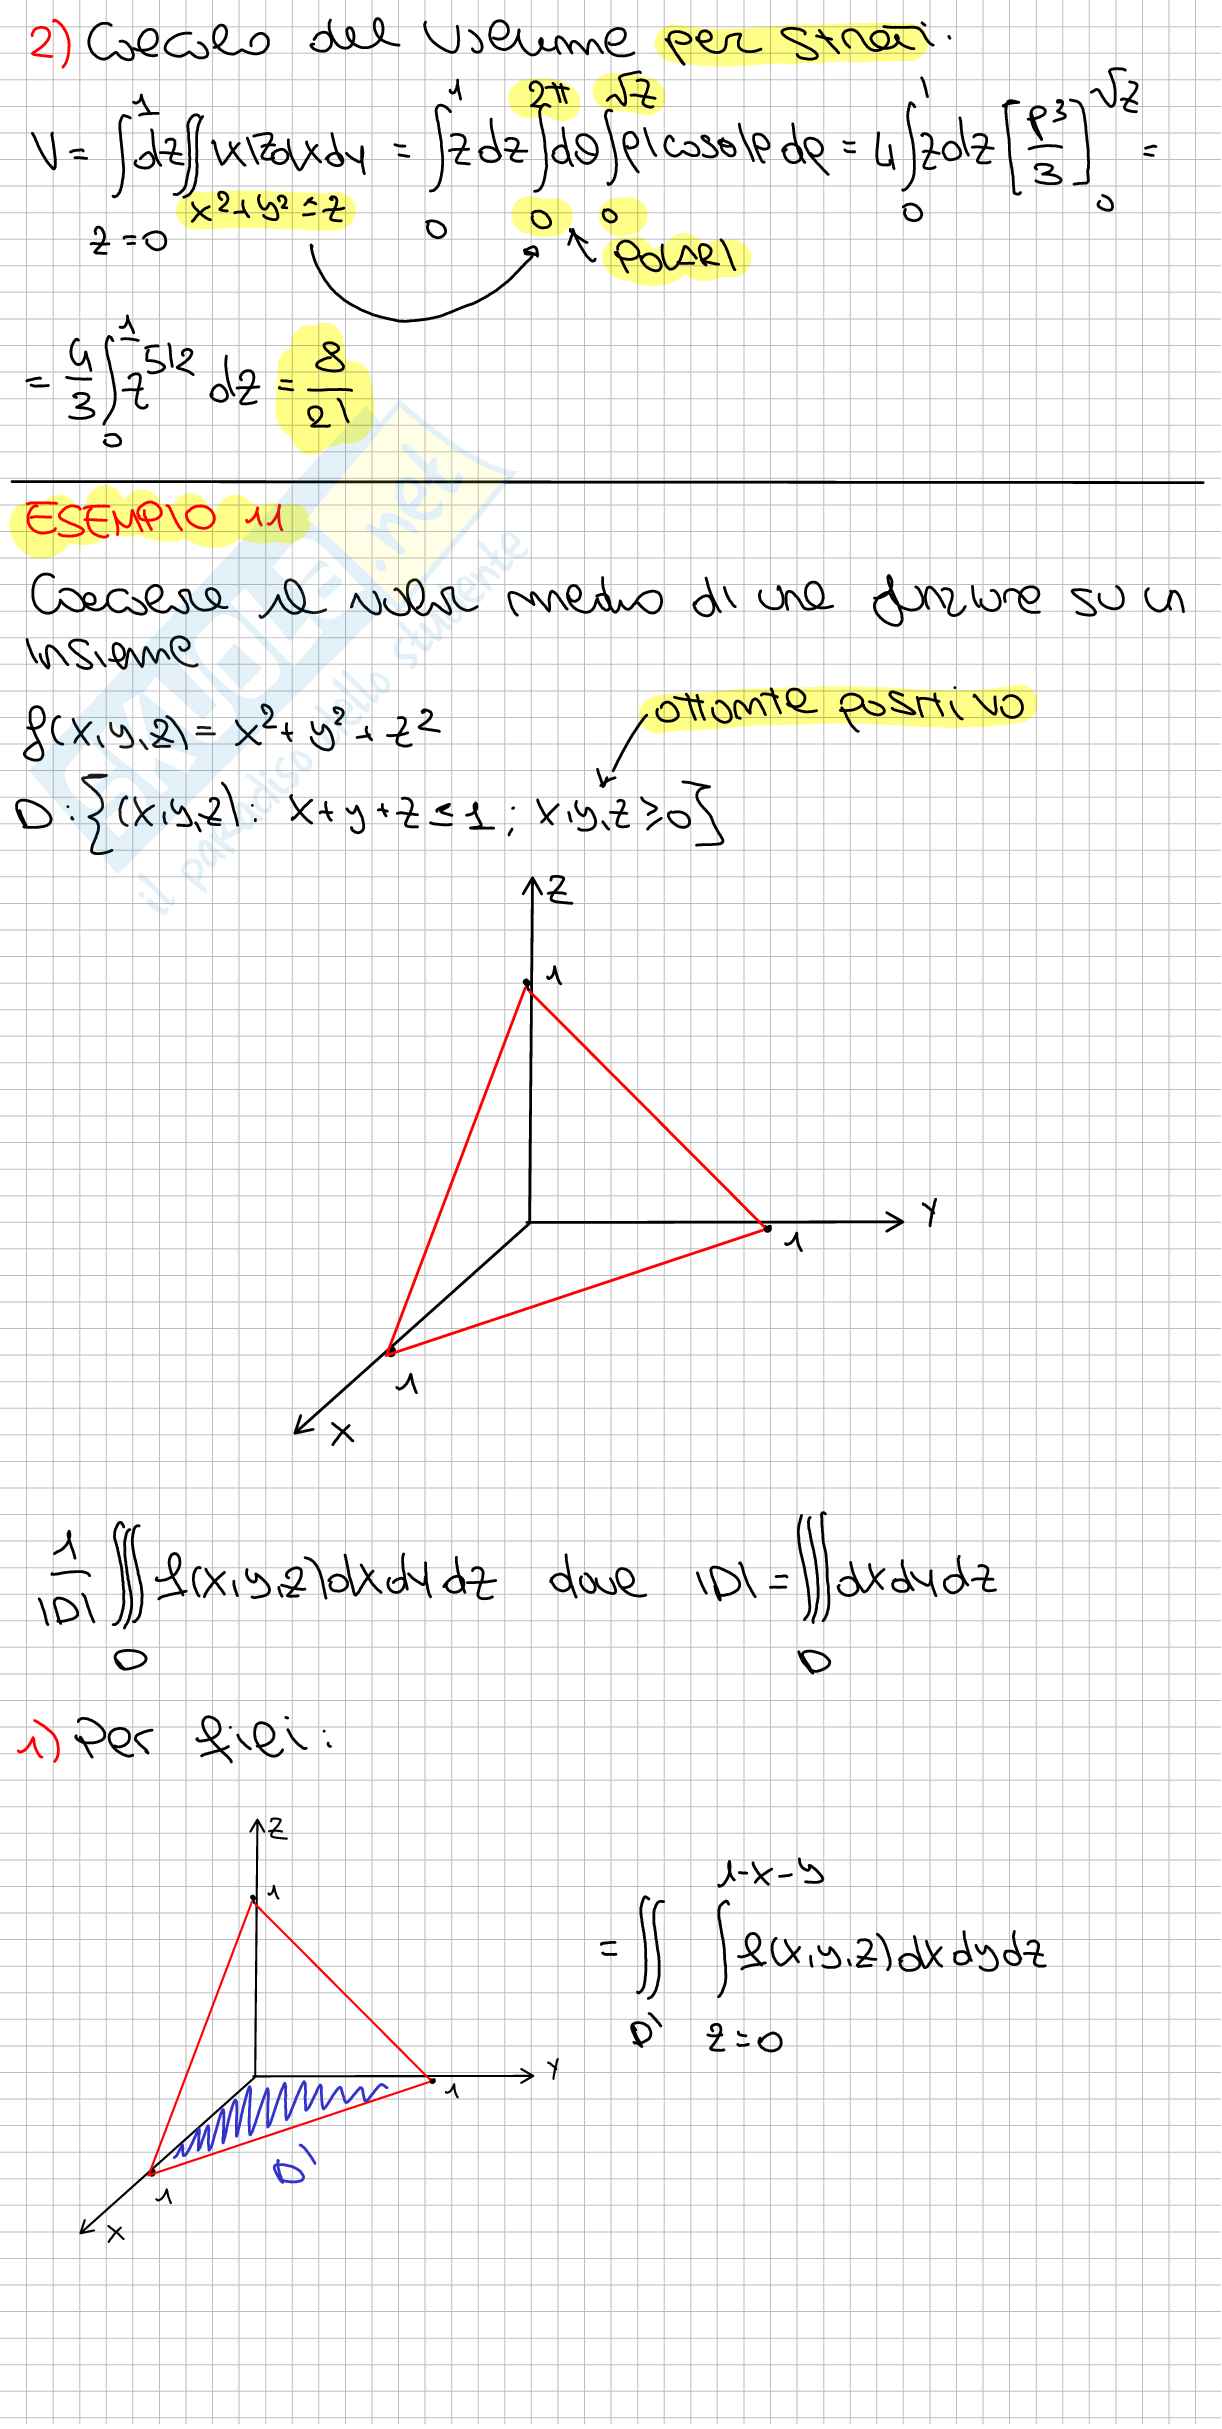 2) Calcolo del volume per strati.
V = ∫_{z=0}^{1} dz ∬_{x²+y²≤z} |x|z dx dy = ∫_0^1 z dz ∫_0^{2π} dθ ∫_0^{√z} ρ|cosθ|ρ dρ = 4 ∫_0^1 z dz [ρ³/3]_0^{√z} =
POLARI
= 4/3 ∫_0^1 z^{5/2} dz = 8/21
ESEMPIO 11
Calcolare il valor medio di una funzione su un
insieme
f(x,y,z) = x² + y² + z²
ottante positivo
D: {(x,y,z): x+y+z ≤ 1; x,y,z ≥ 0}
z
1
y
1
1
x
1/|D| ∭_D f(x,y,z) dx dy dz dove |D| = ∭_D dx dy dz
1) Per fili:
z
1
= ∬_{D'} ∫_{z=0}^{1-x-y} f(x,y,z) dx dy dz
y
1
D'
1
x
SKUOLA.net
il paradiso dello studente